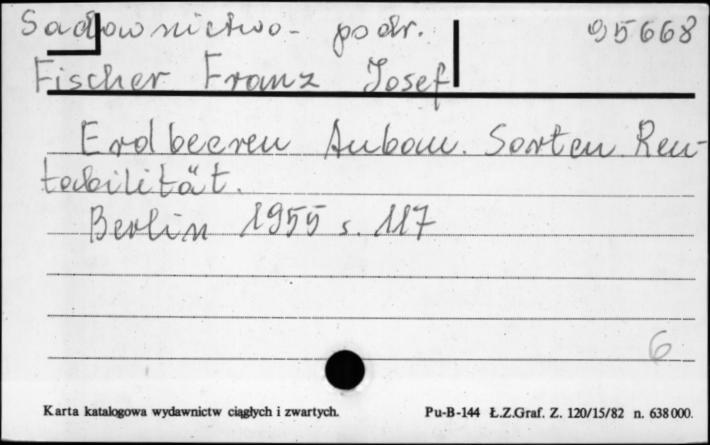 Sadownictwo - podr. 95668
Fischer Franz Josef
Erdbeeren Anbau. Sorten Ren-
tabilität.
Berlin 1955 s. 117
6
Karta katalogowa wydawnictw ciągłych i zwartych. Pu-B-144 Ł.Z.Graf. Z. 120/15/82 n. 638000.